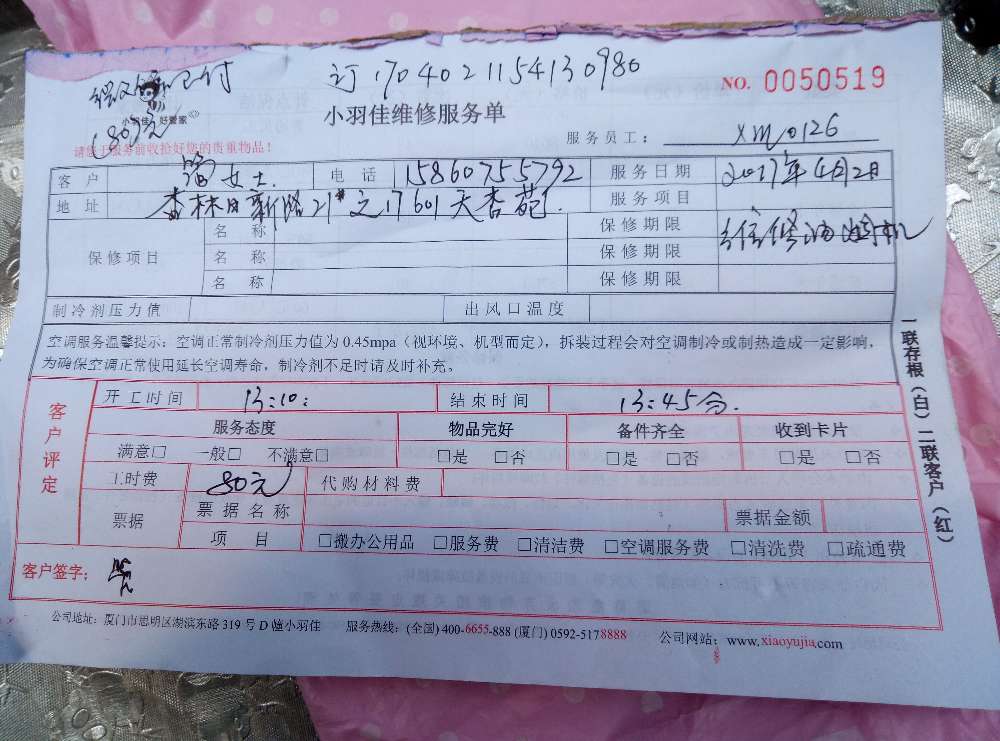 已付 订 170402115413 0980
NO. 0050519
小羽佳 好管家
80元
小羽佳维修服务单
请您于服务前收拾好您的贵重物品!
服务员工: XM0126
客户 女士. 电话 15860755792 服务日期 2017年4月2日
地址 杏林日新路21#之17 601天杏苑. 服务项目
保修项目 名称 保修期限 维修油烟机
名称 保修期限
名称 保修期限
制冷剂压力值 出风口温度
空调服务温馨提示: 空调正常制冷剂压力值为 0.45mpa(视环境、机型而定), 拆装过程会对空调制冷或制热造成一定影响,
为确保空调正常使用延长空调寿命, 制冷剂不足时请及时补充。
客户评定
开工时间 13:10: 结束时间 13:45分.
服务态度 物品完好 备件齐全 收到卡片
满意□ 一般□ 不满意□ □是 □否 □是 □否 □是 □否
工时费 80元 代购材料费
票据 票据名称 票据金额
项目 □搬办公用品 □服务费 □清洁费 □空调服务费 □清洗费 □疏通费
客户签字:
一联存根(白)二联客户(红)
公司地址: 厦门市思明区湖滨东路 319 号 D 幢小羽佳 服务热线: (全国) 400-6655-888 (厦门) 0592-5178888 公司网站: www.xiaoyujia.com